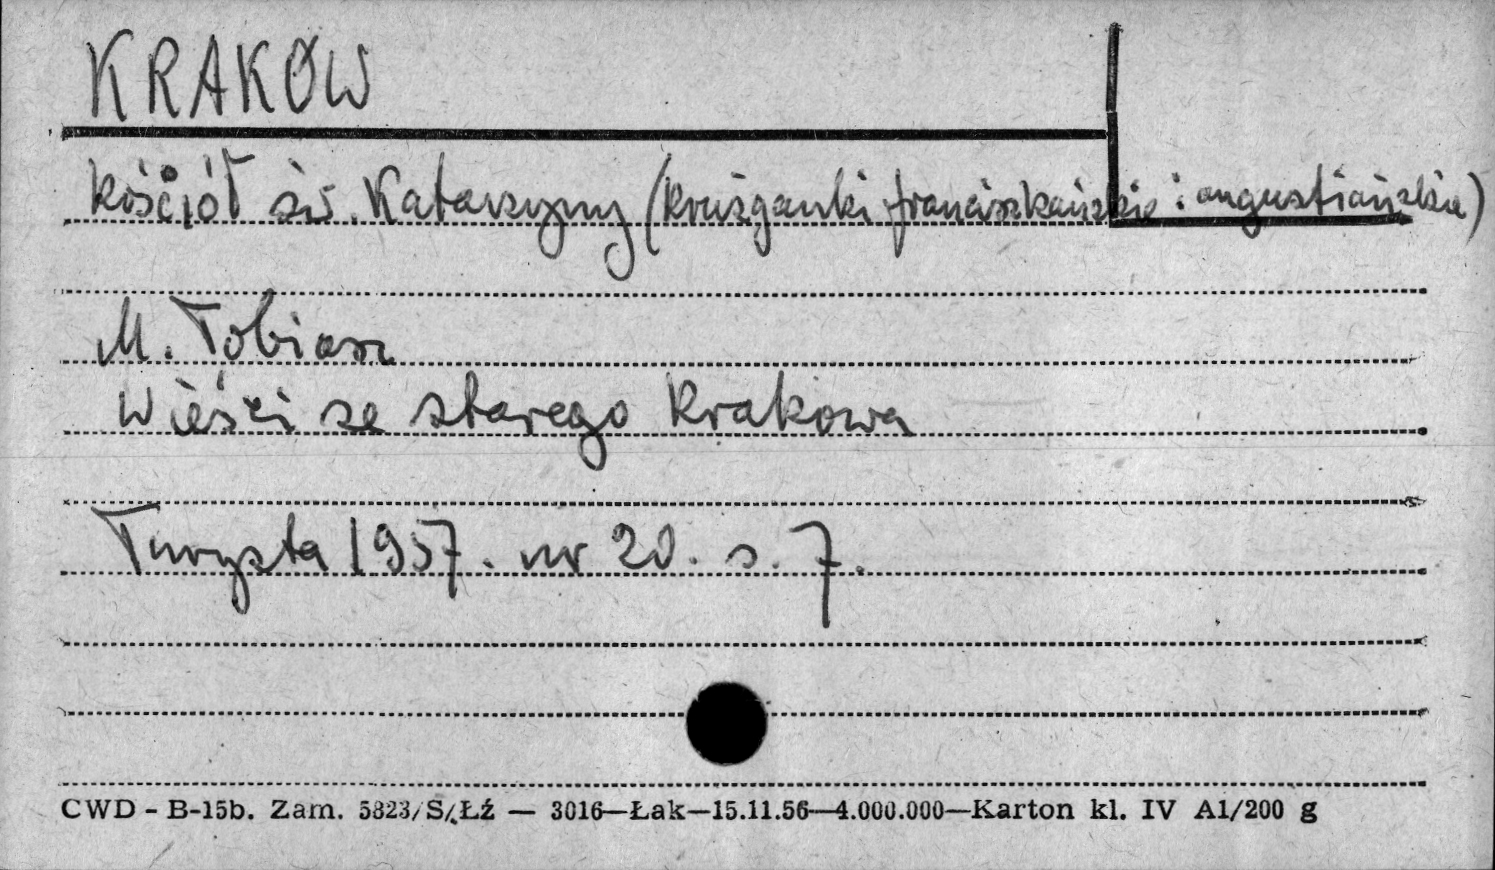 KRAKÓW
kościół św. Katarzyny (krużganki franciszkańskie i augustiańskie)
M. Tobiasz
Wieści ze starego Krakowa
Turysta 1957. nr 20. s. 7.
CWD - B-15b. Zam. 5823/S/Łź — 3016—Łak—15.11.56—4.000.000—Karton kl. IV A1/200 g